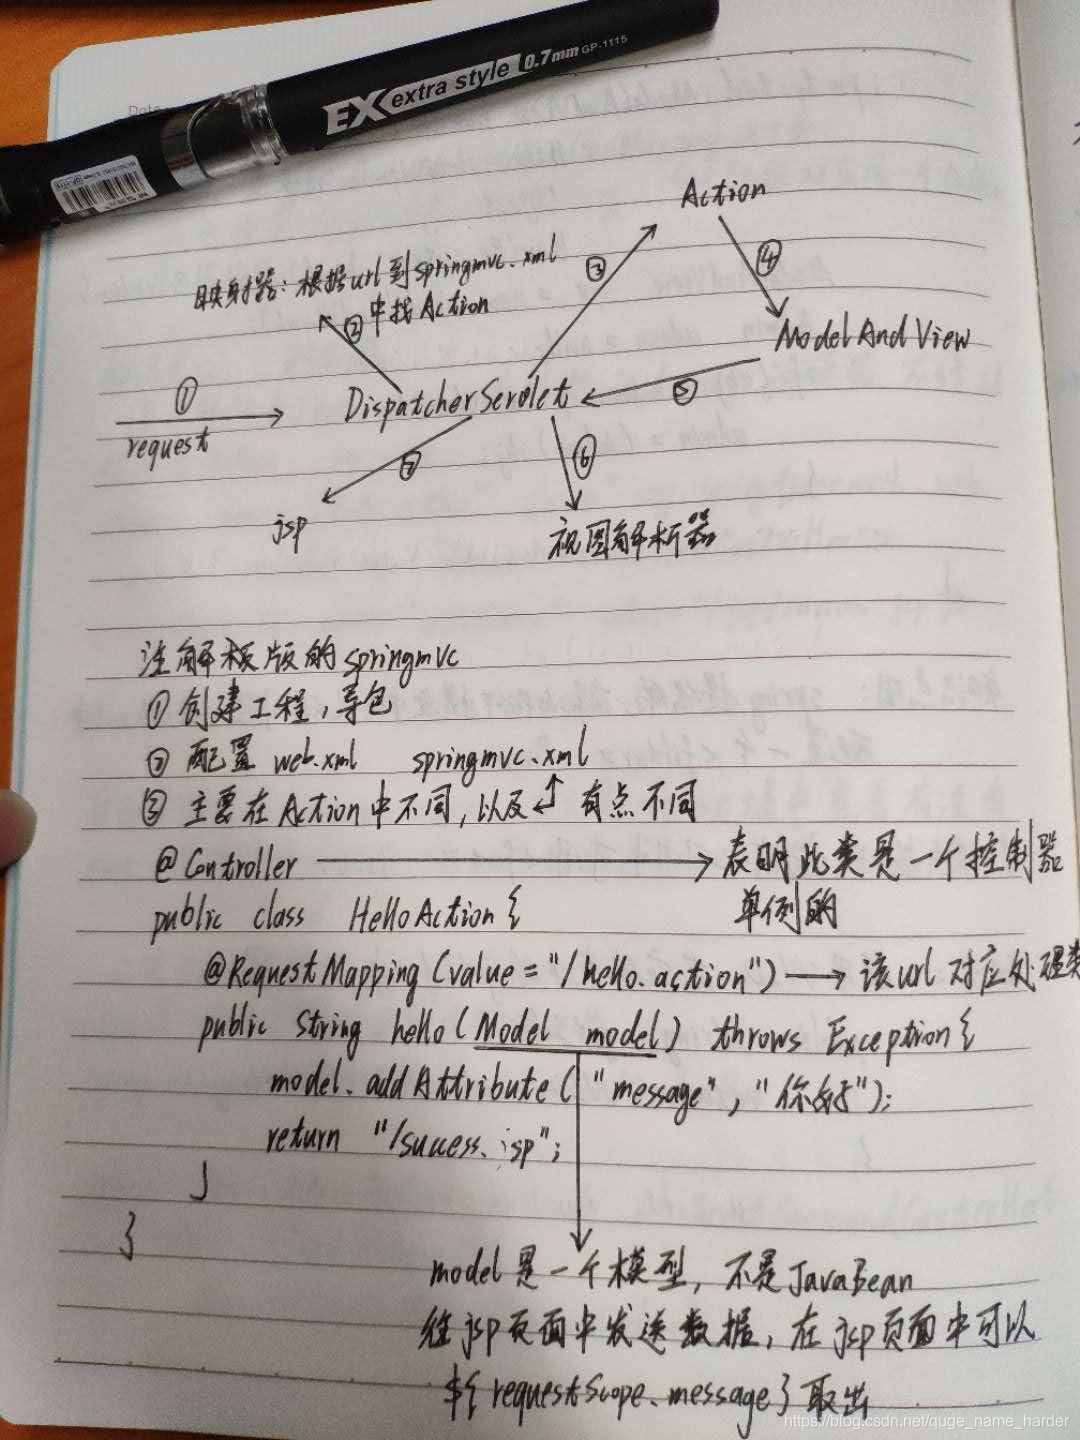 EX extra style 0.7mm GP-1115
Action
③ ④
映射器：根据url到springmvc.xml
中找Action
②
ModelAndView
① DispatcherServlet ⑤
request
⑦ ⑥
jsp
视图解析器
注解模版的springmvc
① 创建工程，导包
② 配置 web.xml springmvc.xml
③ 主要在Action中不同，以及 有点不同
@Controller → 表明此类是一个控制器
public class HelloAction { 单例的
@RequestMapping (value = "/hello.action") → 该url对应处理类
public String hello (Model model) throws Exception {
model.addAttribute ( "message", "你好");
return "/sucess.jsp";
}
}
model是一个模型，不是JavaBean
往jsp页面中发送数据，在jsp页面中可以
${requestScope.message}取出
https://blog.csdn.net/quge_name_harder